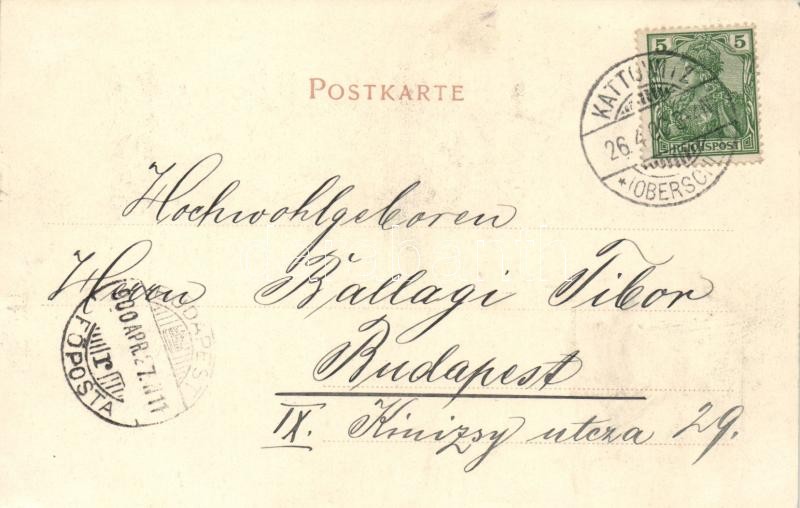 POSTKARTE
5 5
REICHSPOST
KATTOWITZ
26.4.
*(OBERSCHL
Hochwohlgeboren
Herrn Ballagi Tibor
Budapest
IX. Kinizsy utcza 29.
BUDAPEST
900 APR. 27.
FŐPOSTA